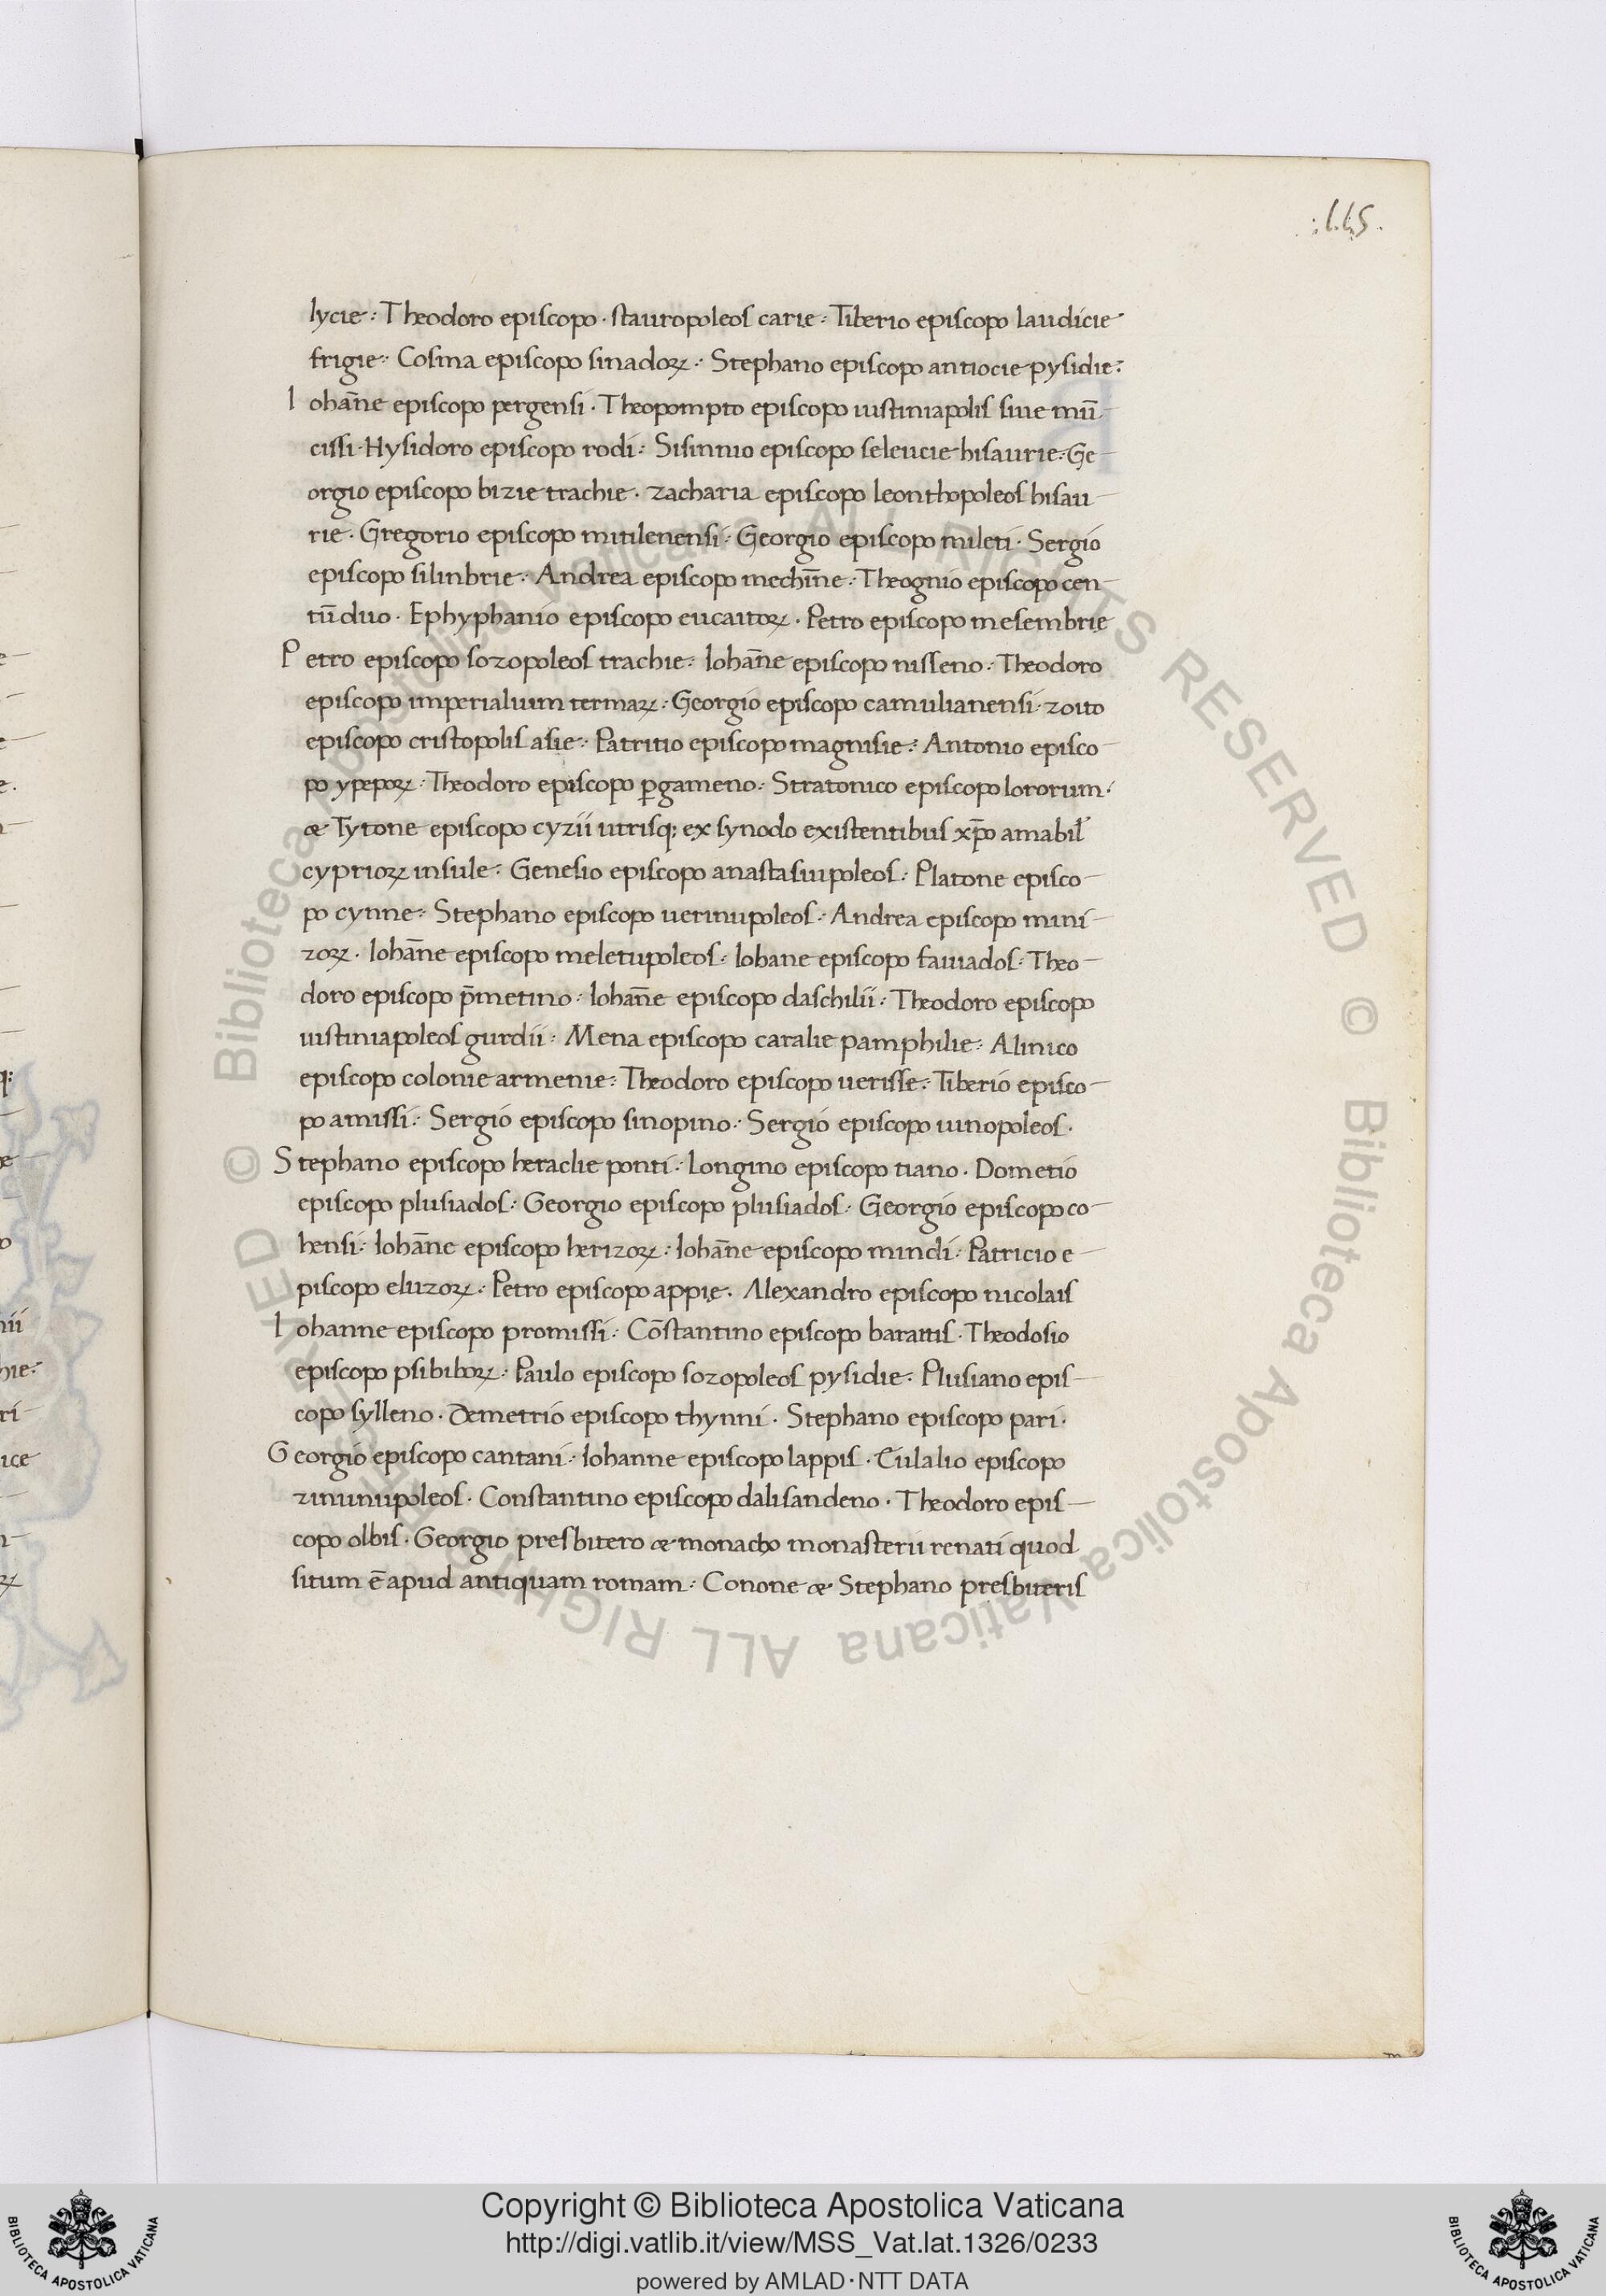 .115.
lycie : Theodoro episcopo · stauropoleos carie : Tiberio episcopo laudicie
frigie : Cosma episcopo sinadoꝝ : Stephano episcopo antiocie pysidie :
Iohãne episcopo pergensi · Theopompto episcopo iustiniapolis siue mũ
cissi · Hysidoro episcopo rodi : Sisinnio episcopo seleucie hisaurie : Ge
orgio episcopo bizie trachie · zacharia episcopo leonthopoleos hisau
rie · Gregorio episcopo mitilenensi : Georgio episcopo mileti · Sergio
episcopo silinbrie : Andrea episcopo mechĩne : Theognio episcopo cen
tũ duo · Ephyphanio episcopo eucaitoꝝ · Petro episcopo mesembrię
Petro episcopo sozopoleos trachie : Iohãne episcopo nisseno : Theodoro
episcopo imperialium termaꝝ : Georgio episcopo camulianensi · zoito
episcopo cristopolis asie : Patritio episcopo magnisie : Antonio episco
po ypepoꝝ : Theodoro episcopo ꝑgameno : Stratonico episcopo lororum ·
& Tytone episcopo cyzii utrisq; ex synodo existentibus xp̃o amabil̃
cyprioꝝ insule : Genesio episcopo anastasiupoleos : Platone episco
po cynne : Stephano episcopo uerinupoleos : Andrea episcopo mini
zoꝝ · Iohãne episcopo meletupoleos : Iohane episcopo fauiados : Theo
doro episcopo p̃metino : Iohãne episcopo daschilii : Theodoro episcopo
iustiniapoleos gurdii : Mena episcopo caralie pamphilie : Alinico
episcopo colonie armenie : Theodoro episcopo uerisse : Tiberio episco
po amissi : Sergio episcopo sinopino : Sergio episcopo iunopoleos ·
Stephano episcopo heraclie ponti : Longino episcopo tiano · Dometio
episcopo plusiados : Georgio episcopo plusiados : Georgio episcopo co
hensi : Iohãne episcopo herizoꝝ : Iohãne episcopo mindi : Patricio e
piscopo eluzoꝝ : Petro episcopo appię · Alexandro episcopo nicolais
Iohanne episcopo promissi : Cõstantino episcopo barattis · Theodosio
episcopo psibiboꝝ : Paulo episcopo sozopoleos pysidie : Plusiano epis
copo sylleno · Demetrio episcopo thynni · Stephano episcopo pari ·
Georgio episcopo cantani : Iohanne episcopo lappis · Eulalio episcopo
zinunupoleos · Constantino episcopo dalisandeno · Theodoro epis
copo olbis · Georgio presbitero & monacho monasterii renati quod
situm ẽ apud antiquam romam : Conone & Stephano presbiteris
© Biblioteca Apostolica Vaticana ALL RIGHTS RESERVED © Biblioteca Apostolica Vaticana ALL RIGHTS RESERVED
Copyright © Biblioteca Apostolica Vaticana
http://digi.vatlib.it/view/MSS_Vat.lat.1326/0233
powered by AMLAD·NTT DATA
BIBLIOTECA APOSTOLICA VATICANA
BIBLIOTECA APOSTOLICA VATICANA